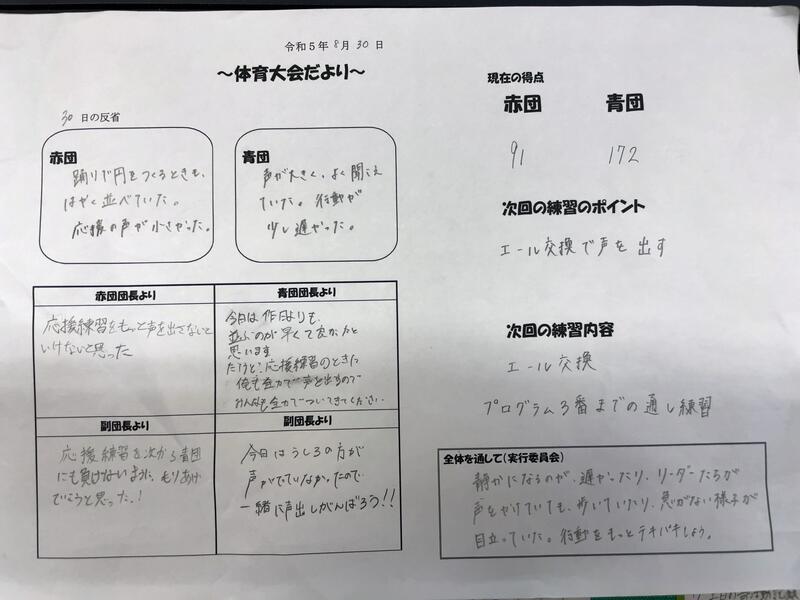 令和5年8月30日
～体育大会だより～
30日の反省
赤団
踊りで円をつくるときも、
はやく並べていた。
応援の声が小さかった。
青団
声が大きく、よく聞え
ていた。行動が
少し遅かった。
赤団団長より
応援練習をもっと声を出さないと
いけないと思った
青団団長より
今日は昨日よりも、
並ぶのが早くて良かったと
思います
だけど、応援練習のときに
俺も全力で声を出すので
みんなも全力でついてきてください.
副団長より
応援練習を次から青団
にも負けないように、もりあげ
ていこうと思った!
副団長より
今日はうしろの方が
声がでていなかったので
一緒に声出しがんばろう!!
現在の得点
赤団 青団
91 172
次回の練習のポイント
エール交換で声を出す
次回の練習内容
エール交換
プログラム3番までの通し練習
全体を通して(実行委員会)
静かになるのが、遅かったり、リーダーたちが
声をかけていても、歩いていたり、急がない様子が
目立っていた。行動をもっとテキパキしよう。